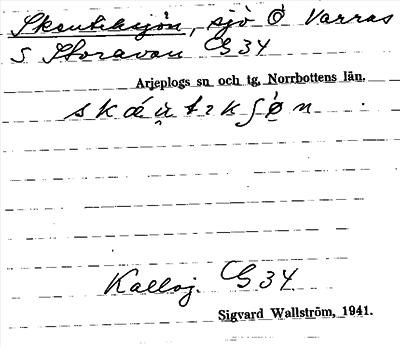 Skeutiksjön, sjö Ö Varras
S Storavan G 34
Arjeplogs sn och tg, Norrbottens län.
Kalloj. G 34
Sigvard Wallström, 1941.